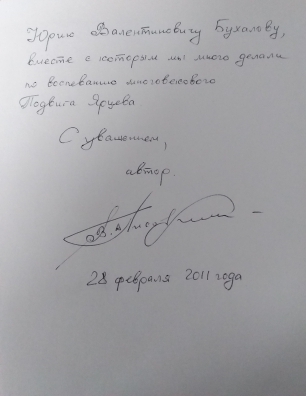 Юрию Валентиновичу Бухалову,
вместе с которым мы много делали
по воспеванию многовекового
Подвига Ярцева
С уважением,
автор.
28 февраля 2011 года